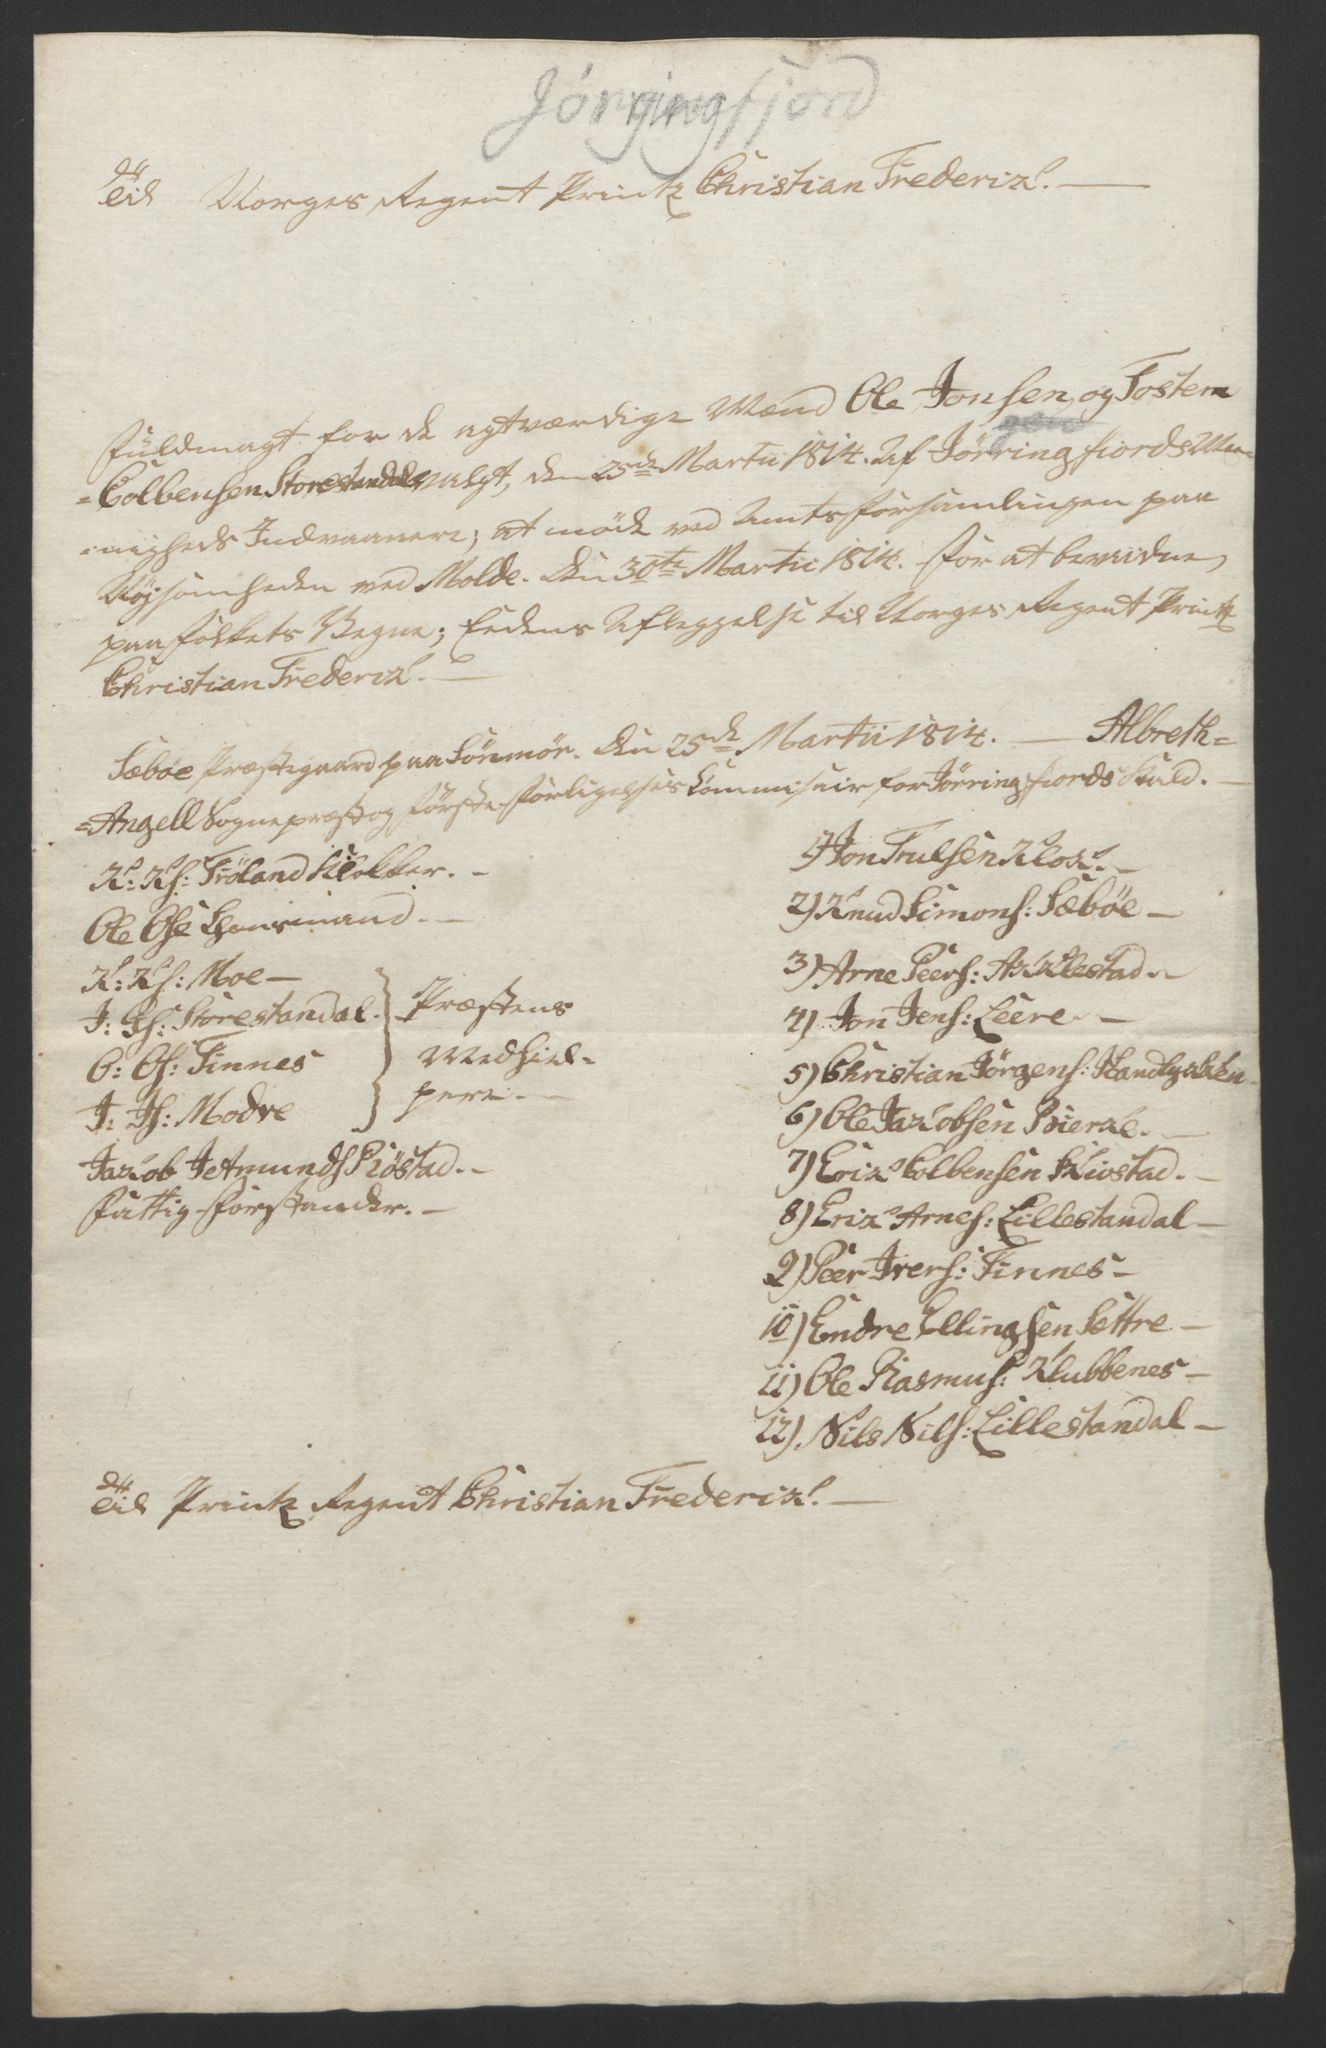 Jørgingfjord
Til Norges Regent Printz Christian Frederik. —
Fuldmagt for de agtværdige Mænd Ole Jonsen, og Tosten
=Colbensen Storestandal valgt, den 25de Martii 1814. Af Jørringfiords Me=
=nigheds Indvaanere; at møde ved Amts Forsamlingen paa
Nøjsomheden ved Molde. Den 30te Martii 1814. for at bevidne,
paa Folkets Vegne; Eedens Aflæggelse til Norges Regent Printz
Christian Frederik. —
Sæbøe Præstegaard paa Søndmør. Den 25de Martii 1814. — Albreth=
=Angell Sognepræst og Første Forligelses Commissair for Jørringfiords Skuld. —
K: Ks: Frøland Klokker. —
Ole Ols: Lhensmand. —
K: Ks: Moe —
J: Js: Storestandal.
O: Os: Finnes
J: Js: Modre
Præstens
Medhiel=
pere. —
Jacob JetmundsRøstad. —
Fattig Forstander. —
1) Jon Trulsen Klok: —
2) Knud Simons: Sæbøe —
3) Arne Peers: Aklestad. —
4) Jon Jens: Leere. —
5) Christian Jørgens: Handlykken
6) Ole Jacobsen Bierke. —
7) Erik Colbensen Skivstad. —
8) Erik Arnes: Lillestandal —
9) Peer Ivers: Finnes —
10) Endre Ellingsen Sættre —
11) Ole Rasmus: Klubbenes —
12) Nils Nils: Lillestandal —
Til Printz Regent Christian Frederik. —